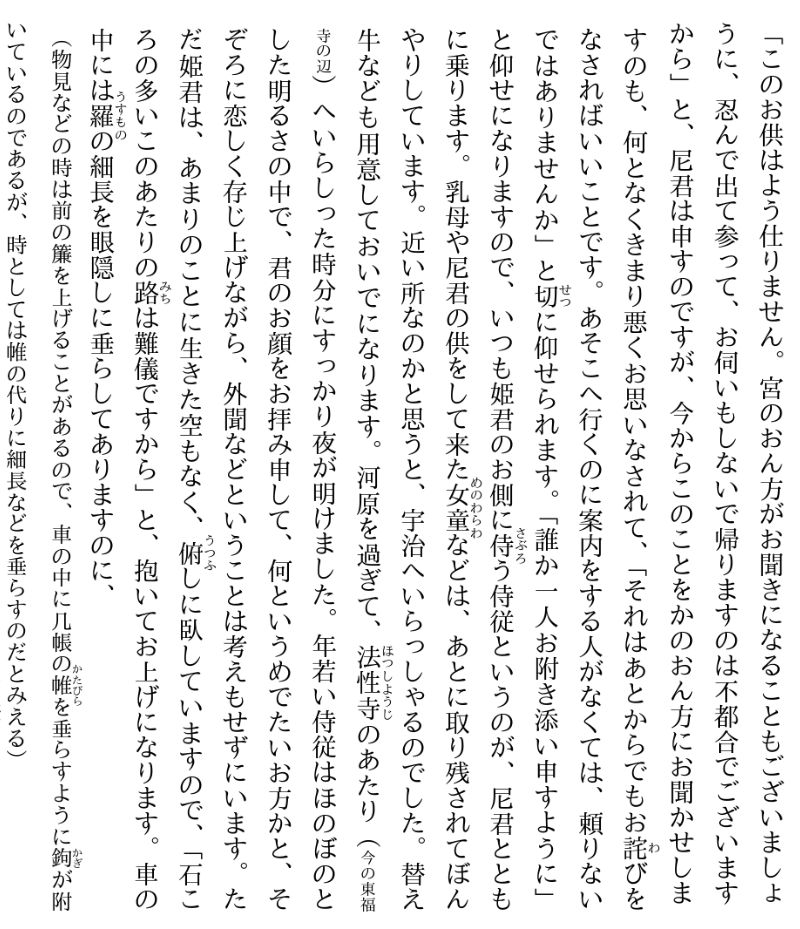 「このお供はよう仕りません。宮のおん方がお聞きになることもございましょ
うに、忍んで出て参って、お伺いもしないで帰りますのは不都合でございます
から」と、尼君は申すのですが、今からこのことをかのおん方にお聞かせしま
すのも、何となくきまり悪くお思いなされて、「それはあとからでもお詫びを
なさればいいことです。あそこへ行くのに案内をする人がなくては、頼りない
ではありませんか」と切に仰せられます。「誰か一人お附き添い申すように」
と仰せになりますので、いつも姫君のお側に侍う侍従というのが、尼君ととも
に乗ります。乳母や尼君の供をして来た女童などは、あとに取り残されてぼん
やりしています。近い所なのかと思うと、宇治へいらっしゃるのでした。替え
牛なども用意しておいでになります。河原を過ぎて、法性寺のあたり（今の東福
寺の辺）へいらしった時分にすっかり夜が明けました。年若い侍従はほのぼのと
した明るさの中で、君のお顔をお拝み申して、何というめでたいお方かと、そ
ぞろに恋しく存じ上げながら、外聞などということは考えもせずにいます。た
だ姫君は、あまりのことに生きた空もなく、俯しに臥していますので、「石こ
ろの多いこのあたりの路は難儀ですから」と、抱いてお上げになります。車の
中には羅の細長を眼隠しに垂らしてありますのに、
（物見などの時は前の簾を上げることがあるので、車の中に几帳の帷を垂らすように鉤が附
いているのであるが、時としては帷の代りに細長などを垂らすのだとみえる）